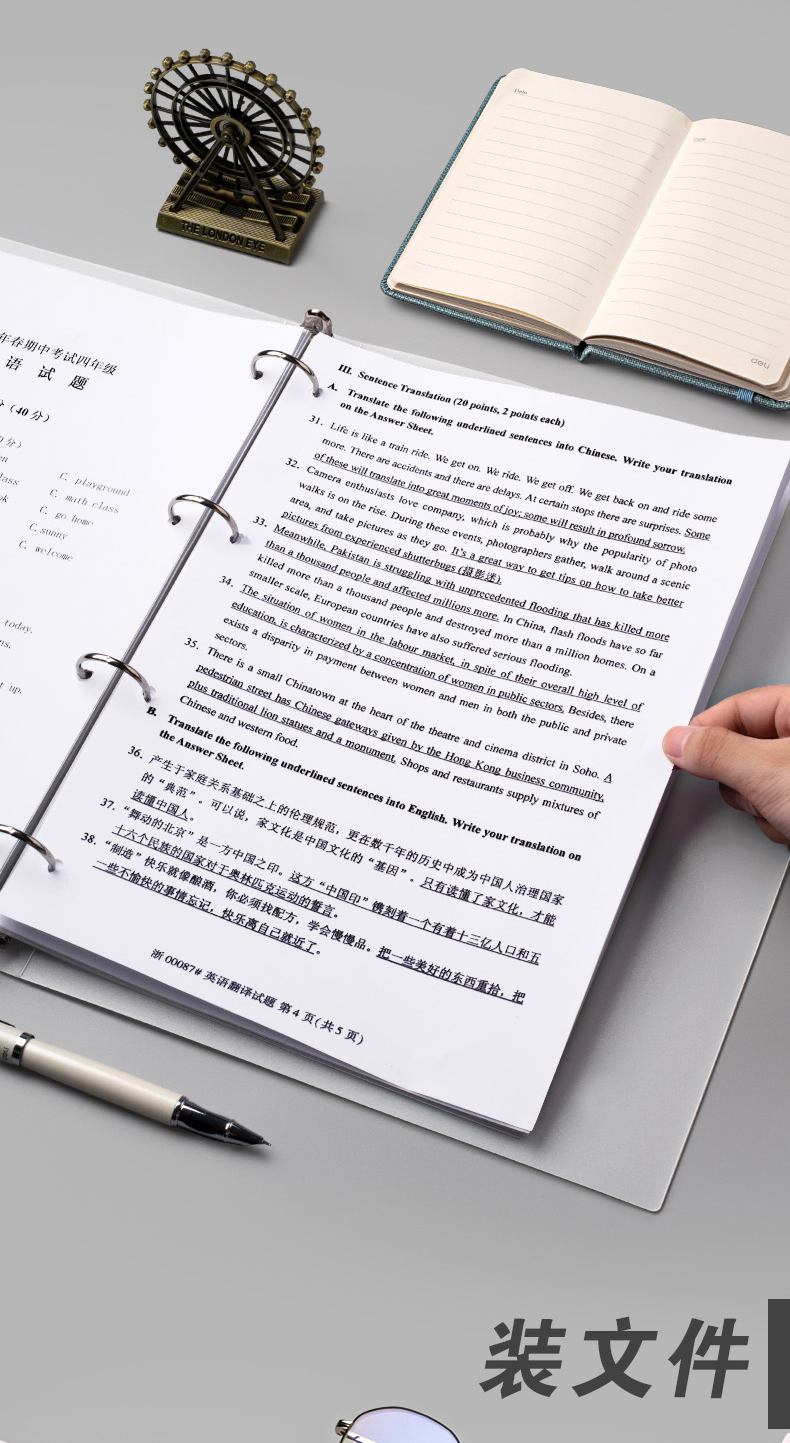 THE LONDON EYE
Date
Date
deli
年春期中考试四年级
语 试 题
(40 分)
分)
C. playground
C. math class
C. go home
C. sunny
C. welcome
today.
up.
III. Sentence Translation (20 points, 2 points each)
A. Translate the following underlined sentences into Chinese. Write your translation
on the Answer Sheet.
31. Life is like a train ride. We get on. We ride. We get off. We get back on and ride some
more. There are accidents and there are delays. At certain stops there are surprises. Some
of these will translate into great moments of joy; some will result in profound sorrow.
32. Camera enthusiasts love company, which is probably why the popularity of photo
walks is on the rise. During these events, photographers gather, walk around a scenic
area, and take pictures as they go. It's a great way to get tips on how to take better
pictures from experienced shutterbugs (摄影迷).
33. Meanwhile, Pakistan is struggling with unprecedented flooding that has killed more
than a thousand people and affected millions more. In China, flash floods have so far
killed more than a thousand people and destroyed more than a million homes. On a
smaller scale, European countries have also suffered serious flooding.
34. The situation of women in the labour market, in spite of their overall high level of
education, is characterized by a concentration of women in public sectors. Besides, there
exists a disparity in payment between women and men in both the public and private
sectors.
35. There is a small Chinatown at the heart of the theatre and cinema district in Soho. A
pedestrian street has Chinese gateways given by the Hong Kong business community,
plus traditional lion statues and a monument. Shops and restaurants supply mixtures of
Chinese and western food.
B. Translate the following underlined sentences into English. Write your translation on
the Answer Sheet.
36. 产生于家庭关系基础之上的伦理规范，更在数千年的历史中成为中国人治理国家
的“典范”。可以说，家文化是中国文化的“基因”。只有读懂了家文化，才能
读懂中国人。
37. “舞动的北京”是一方中国之印。这方“中国印”镌刻着一个有着十三亿人口和五
十六个民族的国家对于奥林匹克运动的誓言。
38. “制造”快乐就像酿酒，你必须找配方，学会慢慢品。把一些美好的东西重拾，把
一些不愉快的事情忘记，快乐离自己就近了。
浙 00087# 英语翻译试题 第 4 页(共 5 页)
装文件